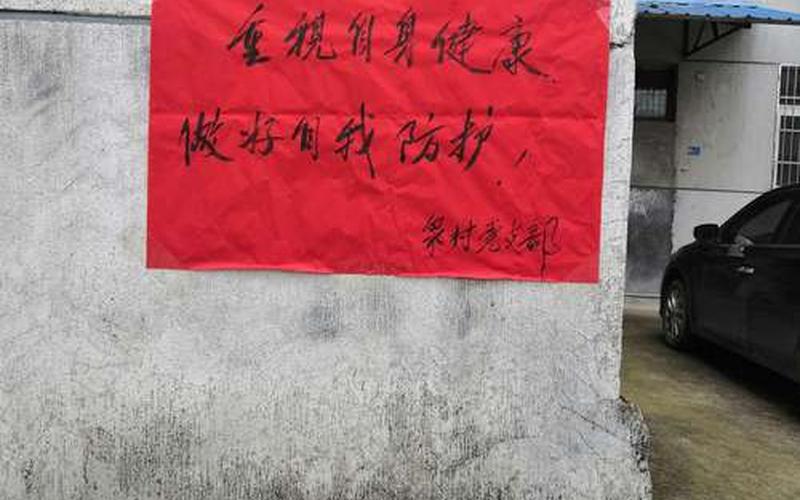 重视自身健康
做好自我防护！
村党支部